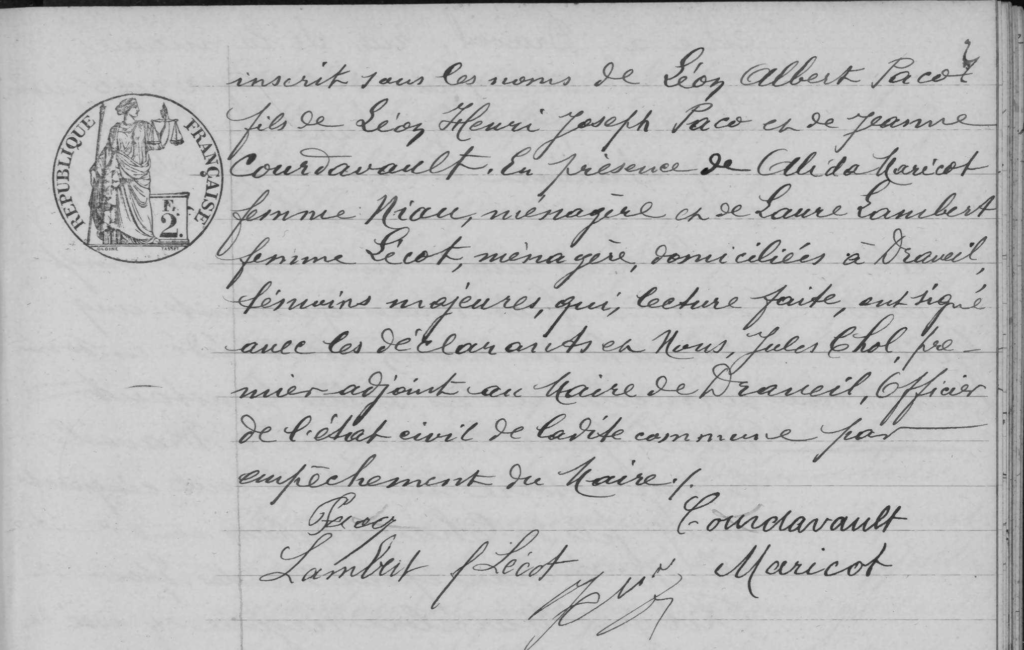 RÉPUBLIQUE FRANÇAISE
2 F.
inscrit sous les noms de Léon Albert Paco
fils de Léon Henri Joseph Paco et de Jeanne
Courdavault. En présence de Alida Maricot
femme Niau, ménagère et de Laure Lambert
femme Lécot, ménagère, domiciliées à Draveil,
témoins majeures, qui, lecture faite, ont signé
avec les déclarants et Nous, Jules Chol, pre-
mier adjoint au Maire de Draveil, Officier
de l'état civil de ladite commune par
empêchement du Maire ./.
Paco
Courdavault
Lambert f Lécot
Maricot